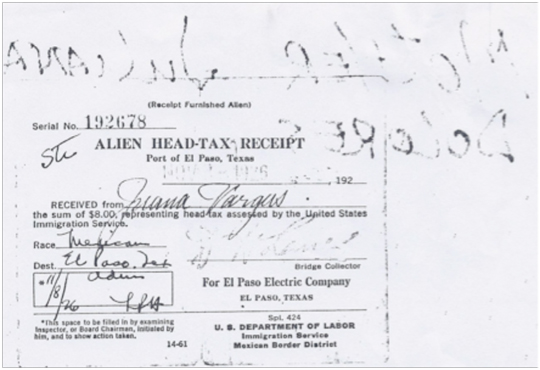 MOTHER JULIANA
DOLORES
(Receipt Furnished Alien)
Serial No. 192678
ALIEN HEAD-TAX RECEIPT
Port of El Paso, Texas
1926 , 192
RECEIVED from Juana Vargas
the sum of $8.00, representing head tax assessed by the United States
Immigration Service.
Race Mexican
Dest. El Paso, Tex
Bridge Collector
*11/8/26 adm
For El Paso Electric Company
EL PASO, TEXAS
*This space to be filled in by examining
Inspector, or Board Chairmen, initialed by
him, and to show action taken.
14-61
Spl. 424
U. S. DEPARTMENT OF LABOR
Immigration Service
Mexican Border District